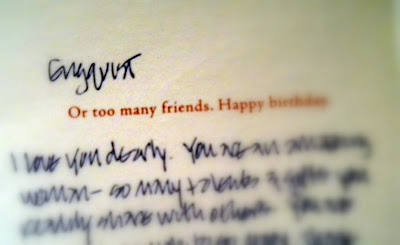 Engquist
Or too many friends. Happy birthday.
I love you dearly. You are an amazing
woman - so many talents & gifts you
readily share with others. You are